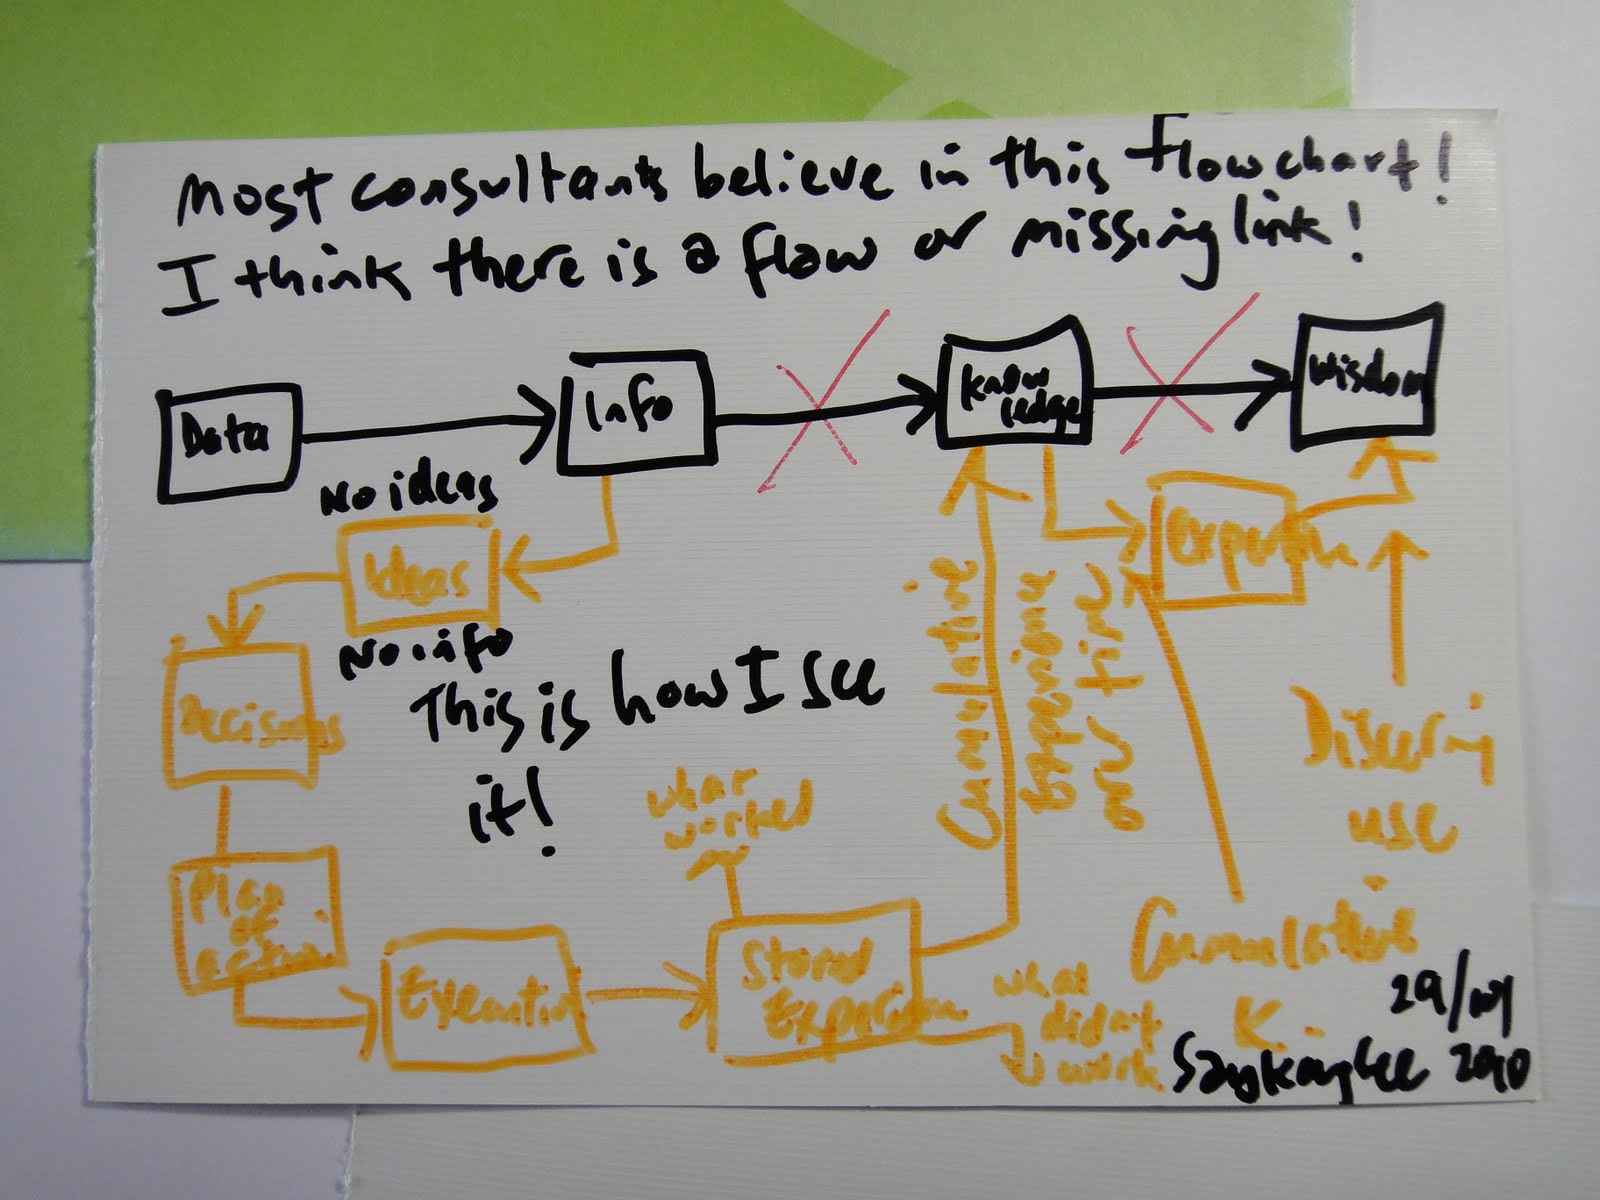 Most consultants believe in this flowchart!
I think there is a flaw or missing link!
Data
Info
Know
ledge
Wisdom
No ideas
Ideas
No info
Decisions
This is how I see
it!
Plan
of
action
Execution
what
worked
Stored
Experience
what
didn't
work
Cumulative
Experience
over time
Experience
Discerning
use
Cumulative
K.
2010